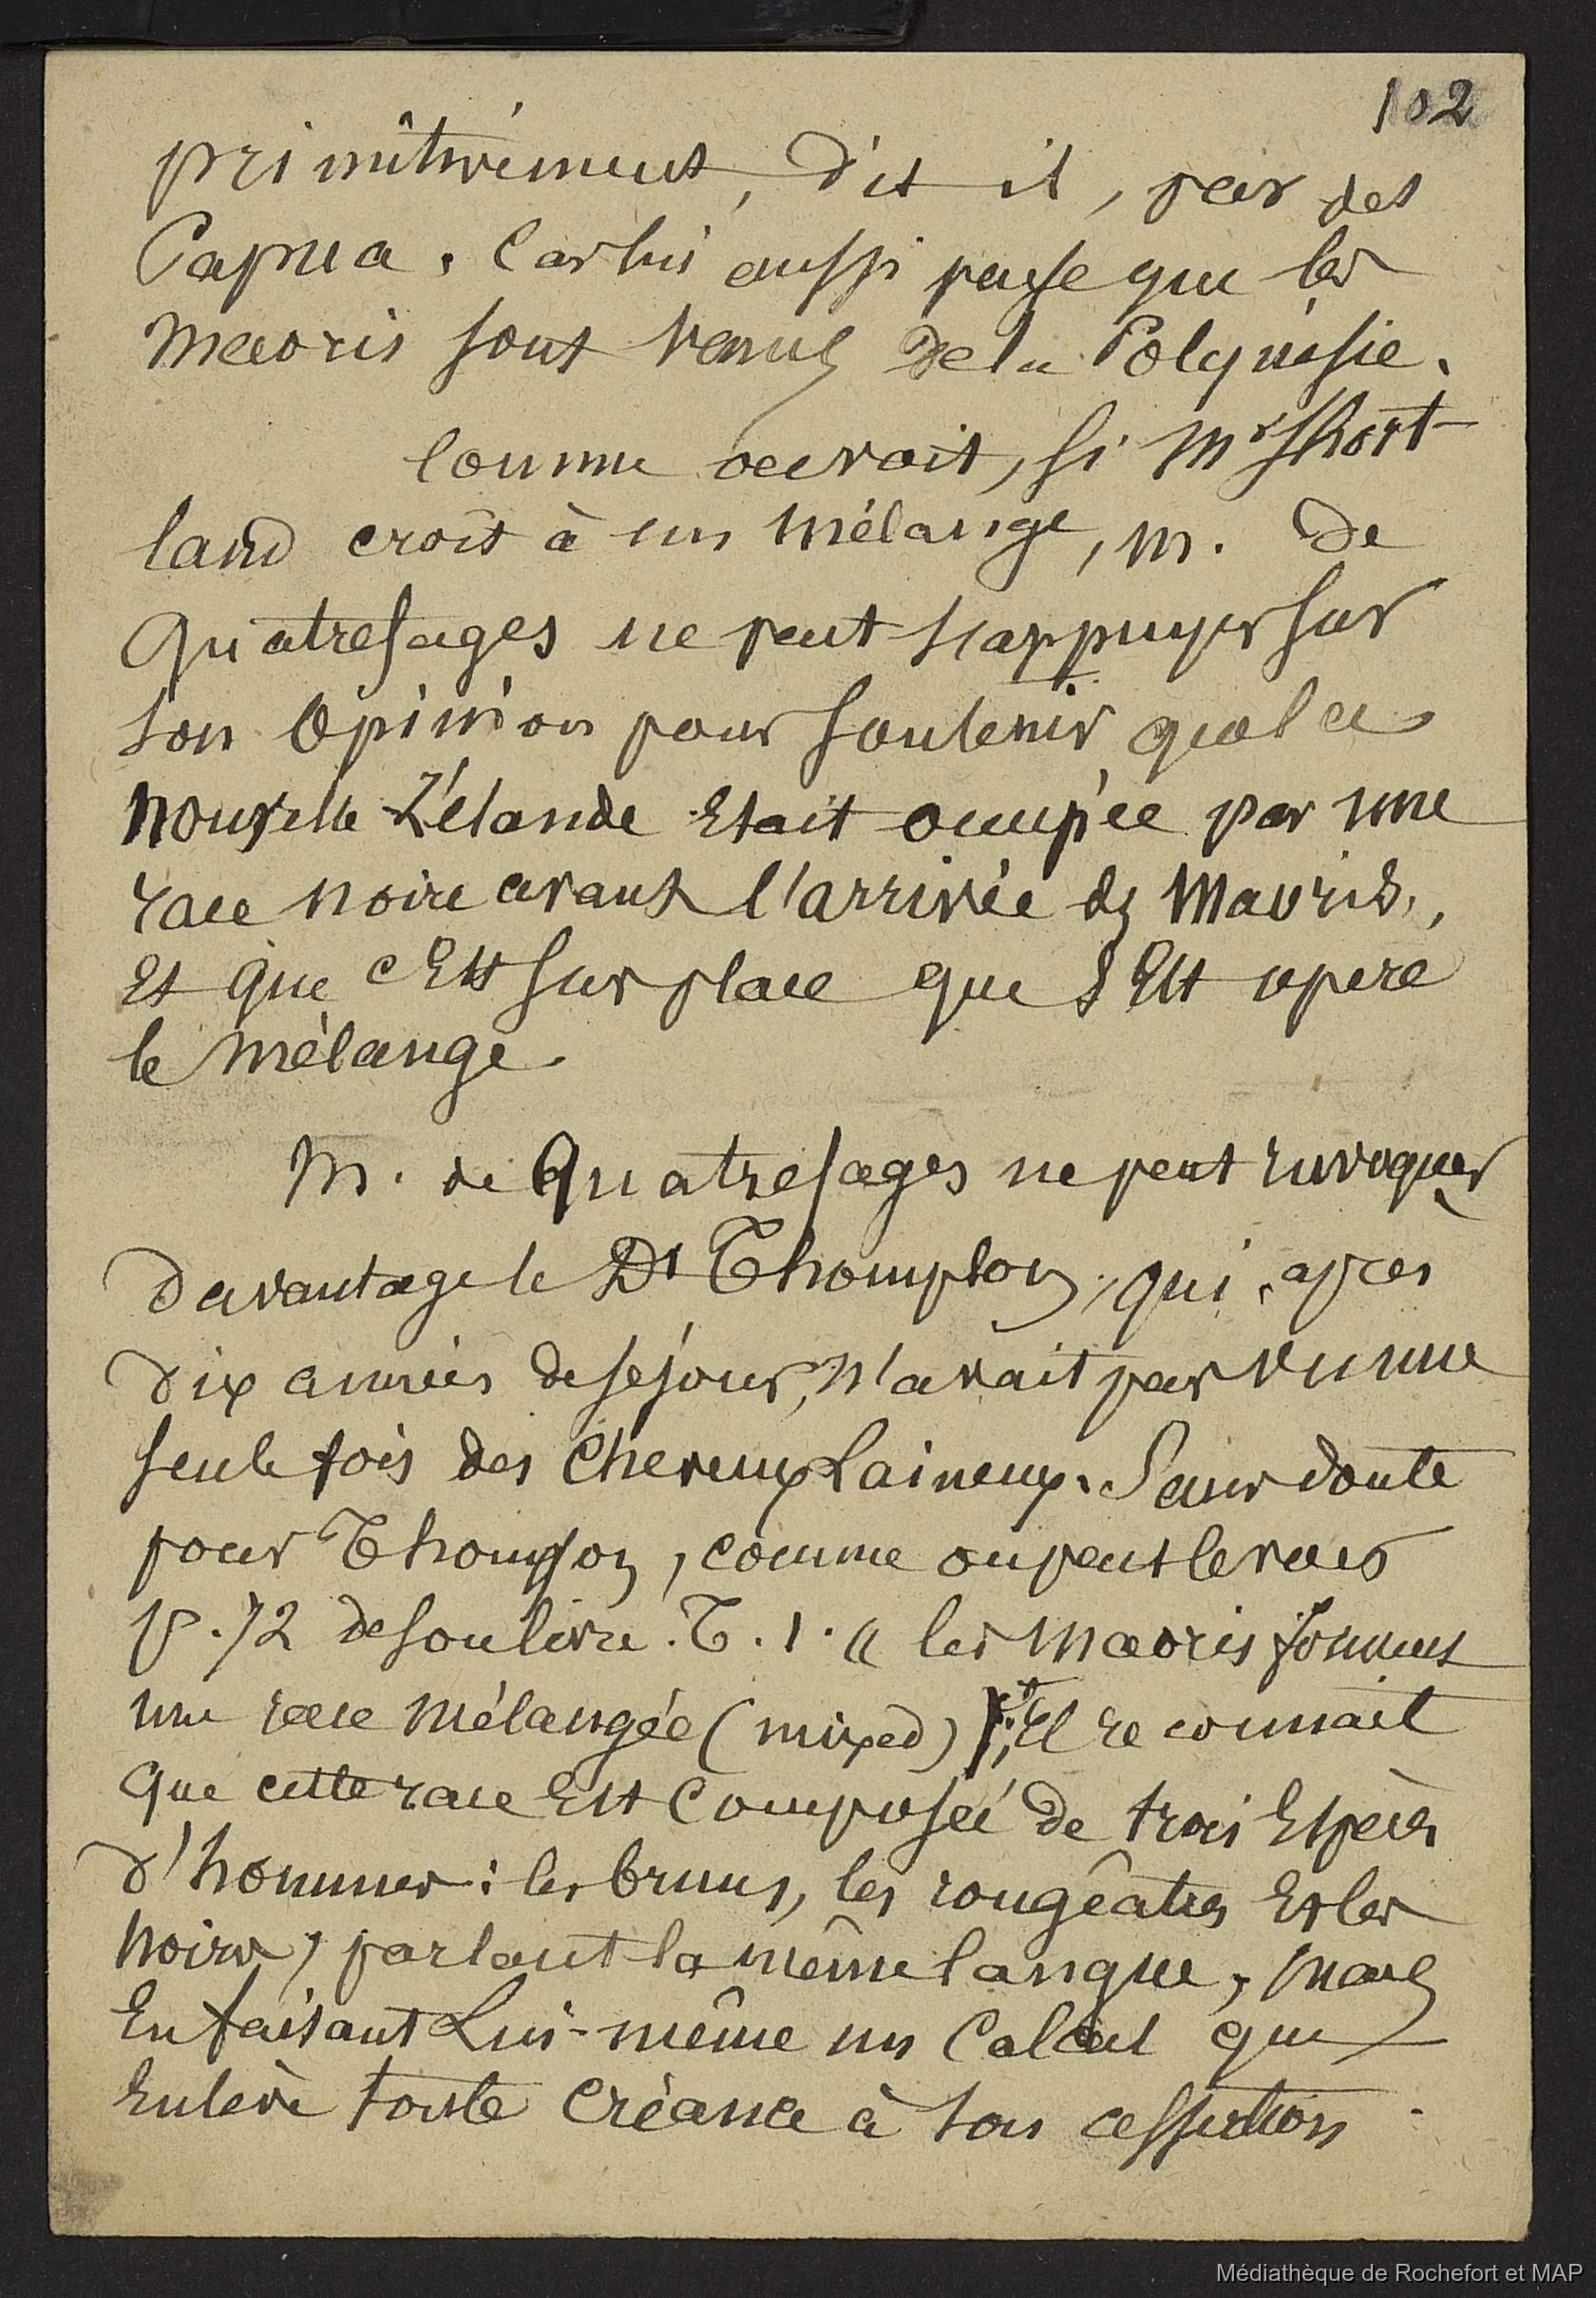 102
primitivement, dit il, par des
Papua. Car lui aussi pense que les
Maoris sont venus de la Polynésie.
Comme on voit, si Mr Short
land croit à un mélange, M. de
Quatrefages ne peut s'appuyer sur
son opinion pour soutenir que la
Nouvelle Zélande était occupée par une
race noire avant l'arrivée des Maoris,
et que c'est sur place que s'est opéré
le mélange.
M. de Quatrefages ne peut invoquer
davantage le Dr Thompson, qui, après
dix années de séjour, n'avait pas vu une
seule fois des cheveux laineux. Sans doute
pour Thompson, comme on peut le voir
p. 72 de son livre. T. 1. « les Maoris forment
une race mélangée (mixed) Il reconnait
que cette race est composée de trois espèces
d'hommes : les bruns, les rougeâtres et les
noirs, parlant la même langue, mais
en faisant lui-même un calcul qui
enlève toute créance à son assertion.
Médiathèque de Rochefort et MAP